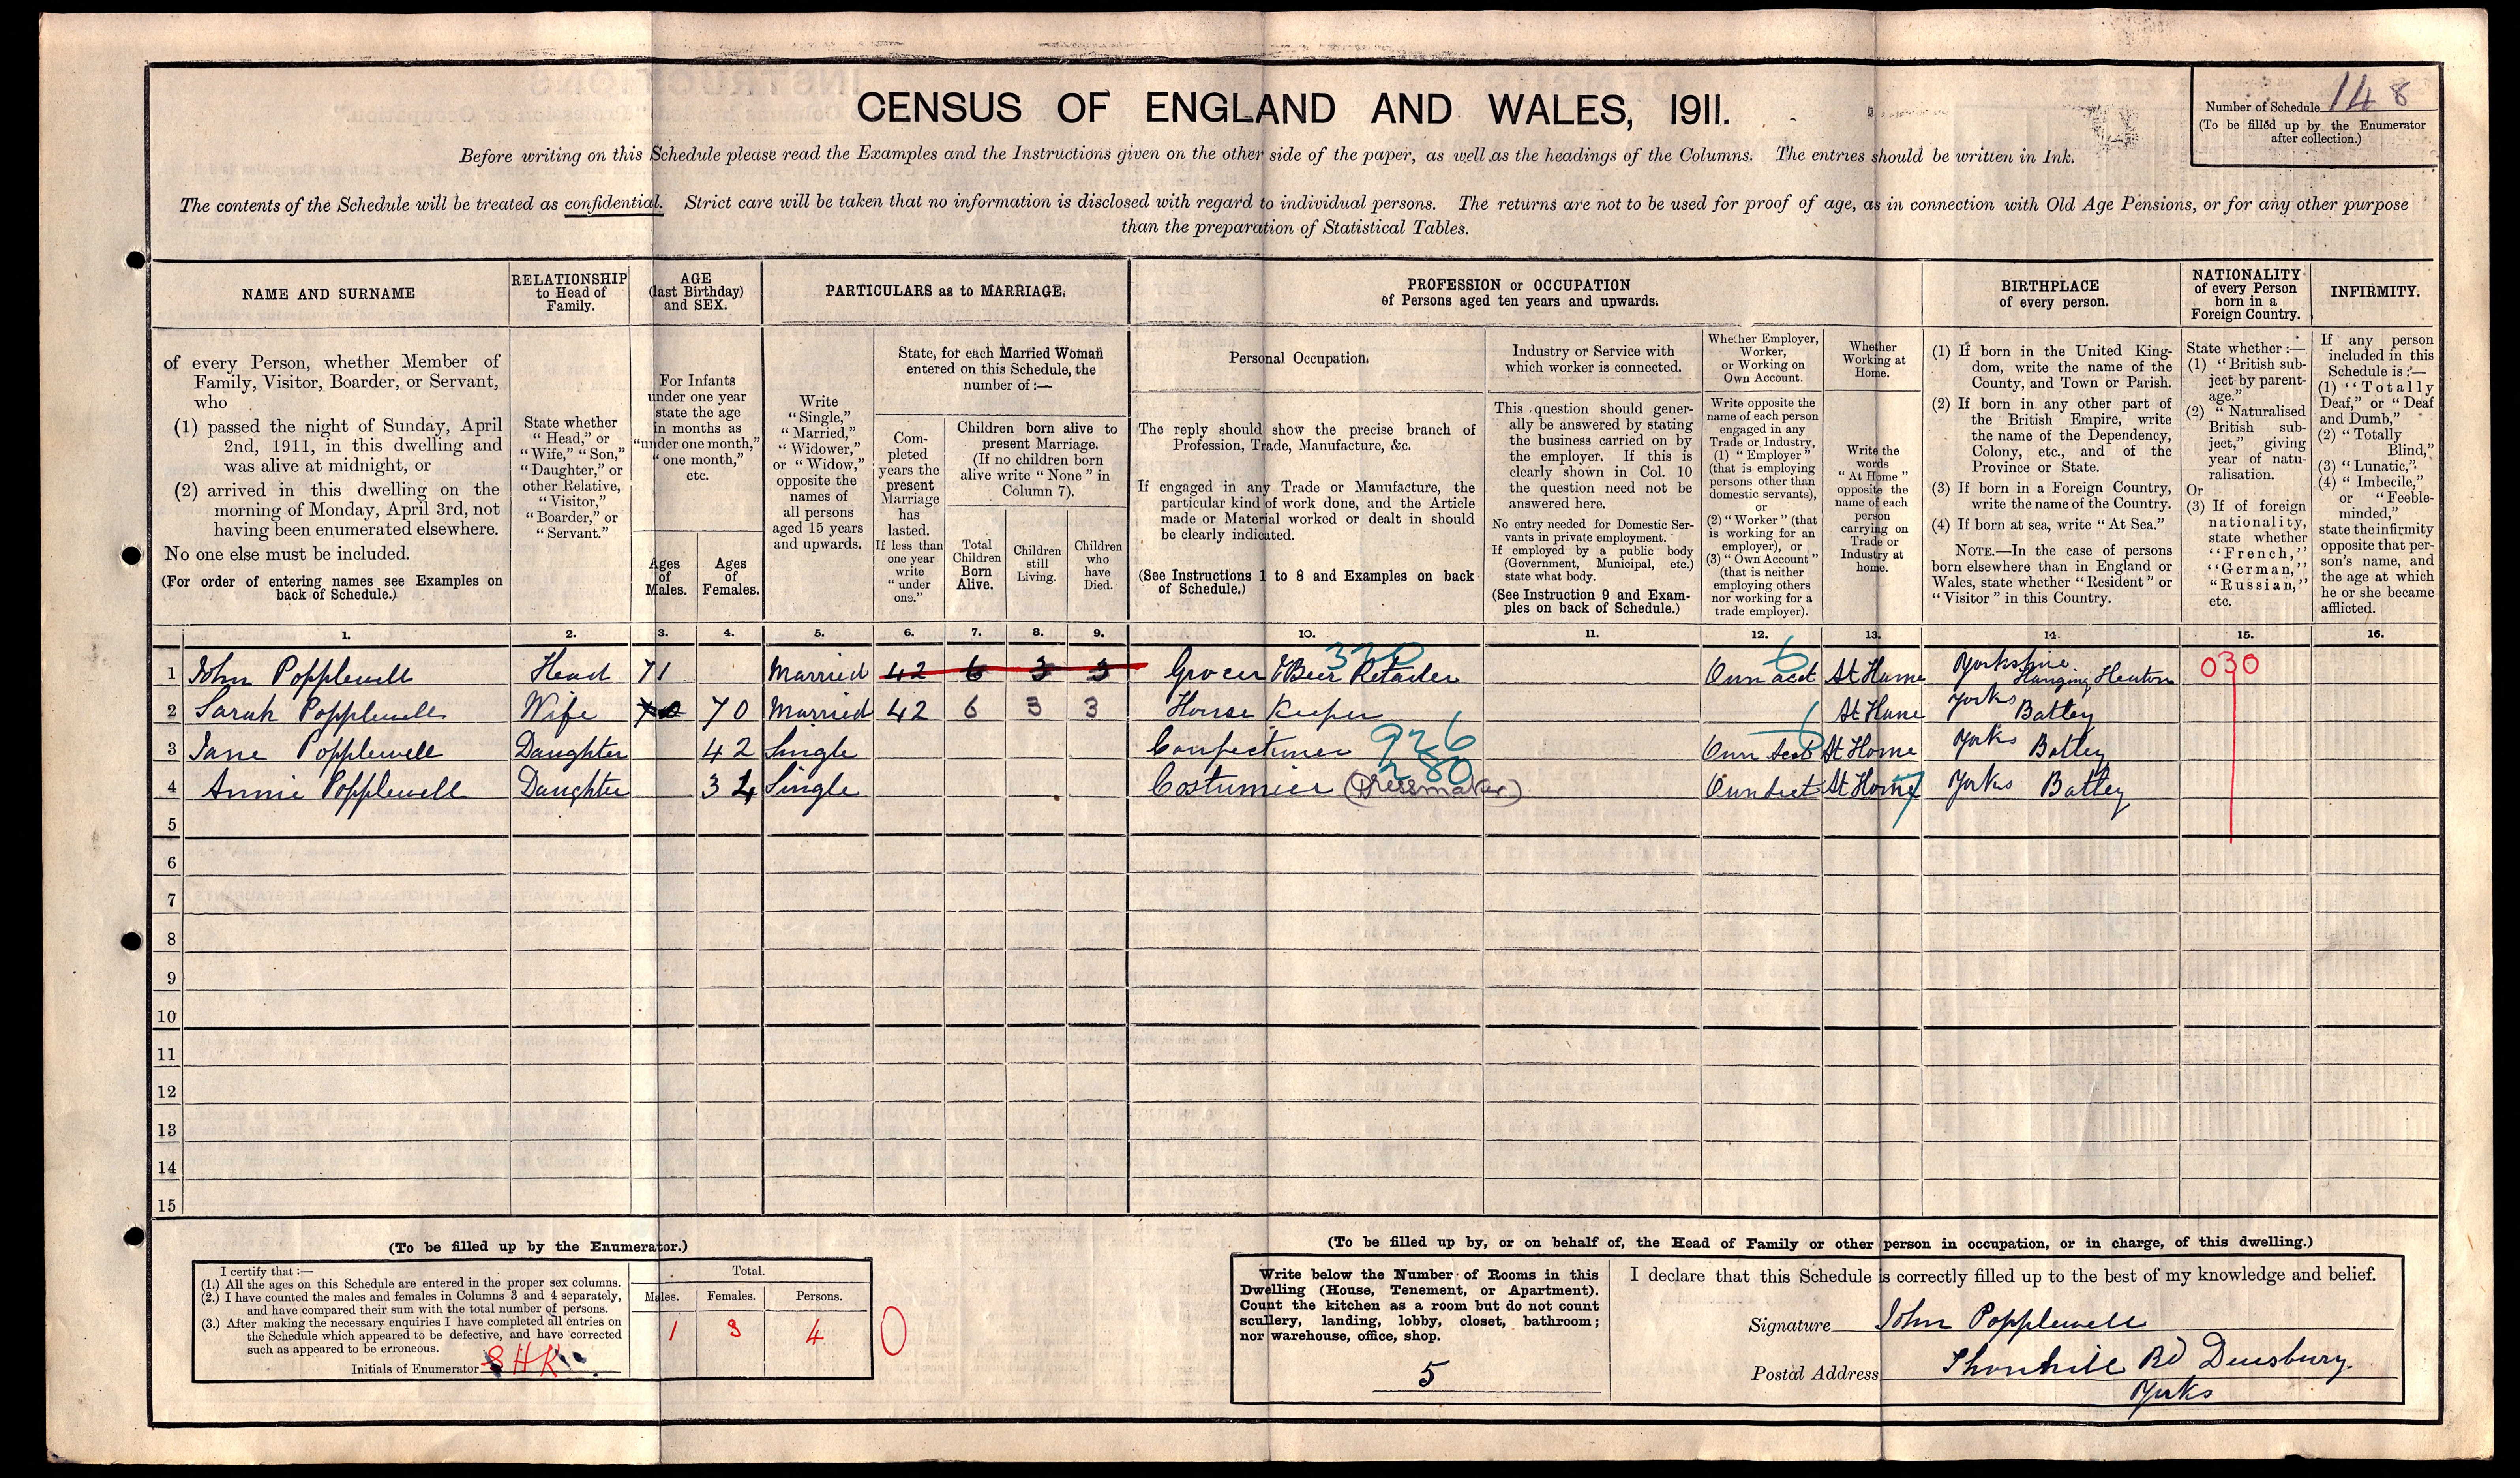 CENSUS OF ENGLAND AND WALES, 1911.
Number of Schedule 148
(To be filled up by the Enumerator
after collection.)
Before writing on this Schedule please read the Examples and the Instructions given on the other side of the paper, as well as the headings of the Columns. The entries should be written in Ink.
The contents of the Schedule will be treated as confidential. Strict care will be taken that no information is disclosed with regard to individual persons. The returns are not to be used for proof of age, as in connection with Old Age Pensions, or for any other purpose
than the preparation of Statistical Tables.
NAME AND SURNAME
of every Person, whether Member of
Family, Visitor, Boarder, or Servant,
who
(1) passed the night of Sunday, April
2nd, 1911, in this dwelling and
was alive at midnight, or
(2) arrived in this dwelling on the
morning of Monday, April 3rd, not
having been enumerated elsewhere.
No one else must be included.
(For order of entering names see Examples on
back of Schedule.)
RELATIONSHIP
to Head of
Family.
State whether
"Head," or
"Wife," "Son,"
"Daughter," or
other Relative,
"Visitor,"
"Boarder," or
"Servant."
AGE
(last Birthday)
and SEX.
For Infants
under one year
state the age
in months as
"under one month,"
"one month,"
etc.
Ages
of
Males.
Ages
of
Females.
PARTICULARS as to MARRIAGE.
Write
"Single,"
"Married,"
"Widower,"
or "Widow,"
opposite the
names of
all persons
aged 15 years
and upwards.
State, for each Married Woman
entered on this Schedule, the
number of:—
Com-
pleted
years the
present
Marriage
has
lasted.
If less than
one year
write
"under
one."
Children born alive to
present Marriage.
(If no children born
alive write "None" in
Column 7).
Total
Children
Born
Alive.
Children
still
Living.
Children
who
have
Died.
PROFESSION or OCCUPATION
of Persons aged ten years and upwards.
Personal Occupation.
The reply should show the precise branch of
Profession, Trade, Manufacture, &c.
If engaged in any Trade or Manufacture, the
particular kind of work done, and the Article
made or Material worked or dealt in should
be clearly indicated.
(See Instructions 1 to 8 and Examples on back
of Schedule.)
Industry or Service with
which worker is connected.
This question should gener-
ally be answered by stating
the business carried on by
the employer. If this is
clearly shown in Col. 10
the question need not be
answered here.
No entry needed for Domestic Ser-
vants in private employment.
If employed by a public body
(Government, Municipal, etc.)
state what body.
(See Instruction 9 and Exam-
ples on back of Schedule.)
Whether Employer,
Worker,
or Working on
Own Account.
Write opposite the
name of each person
engaged in any
Trade or Industry,
(1) "Employer"
(that is employing
persons other than
domestic servants),
or
(2) "Worker" (that
is working for an
employer), or
(3) "Own Account"
(that is neither
employing others
nor working for a
trade employer).
Whether
Working at
Home.
Write the
words
"At Home"
opposite the
name of each
person
carrying on
Trade or
Industry at
home.
BIRTHPLACE
of every person.
(1) If born in the United King-
dom, write the name of the
County, and Town or Parish.
(2) If born in any other part of
the British Empire, write
the name of the Dependency,
Colony, etc., and of the
Province or State.
(3) If born in a Foreign Country,
write the name of the Country.
(4) If born at sea, write "At Sea."
NOTE.—In the case of persons
born elsewhere than in England or
Wales, state whether "Resident" or
"Visitor" in this Country.
NATIONALITY
of every Person
born in a
Foreign Country.
State whether:—
(1) "British sub-
ject by parent-
age."
(2) "Naturalised
British sub-
ject," giving
year of natu-
ralisation.
Or
(3) If of foreign
nationality,
state whether
"French,"
"German,"
"Russian,"
etc.
INFIRMITY.
If any person
included in this
Schedule is:—
(1) "Totally
Deaf," or "Deaf
and Dumb,"
(2) "Totally
Blind,"
(3) "Lunatic,"
(4) "Imbecile,"
or "Feeble-
minded,"
state the infirmity
opposite that per-
son's name, and
the age at which
he or she became
afflicted.
1. 2. 3. 4. 5. 6. 7. 8. 9. 10. 11. 12. 13. 14. 15. 16.
330 6
1 John Popplewell Head 71 Married 42 6 3 3 Grocer & Beer Retailer Own acct At Home Yorkshire Hanging Heaton 030
2 Sarah Popplewell Wife 70 70 Married 42 6 3 3 House Keeper At Home Yorks Batley
926 6
3 Jane Popplewell Daughter 42 Single Confectioner Own Acct At Home Yorks Batley
280
4 Annie Popplewell Daughter 34 Single Costumier (Dressmaker) Own Acct At Home 7 Yorks Batley
5
6
7
8
9
10
11
12
13
14
15
(To be filled up by the Enumerator.)
I certify that:—
(1.) All the ages on this Schedule are entered in the proper sex columns.
(2.) I have counted the males and females in Columns 3 and 4 separately,
and have compared their sum with the total number of persons.
(3.) After making the necessary enquiries I have completed all entries on
the Schedule which appeared to be defective, and have corrected
such as appeared to be erroneous.
Initials of Enumerator SHK
Total.
Males. Females. Persons.
1 3 4 0
(To be filled up by, or on behalf of, the Head of Family or other person in occupation, or in charge, of this dwelling.)
Write below the Number of Rooms in this
Dwelling (House, Tenement, or Apartment).
Count the kitchen as a room but do not count
scullery, landing, lobby, closet, bathroom;
nor warehouse, office, shop.
5
I declare that this Schedule is correctly filled up to the best of my knowledge and belief.
Signature John Popplewell
Postal Address Thornhill Rd Dewsbury.
Yorks